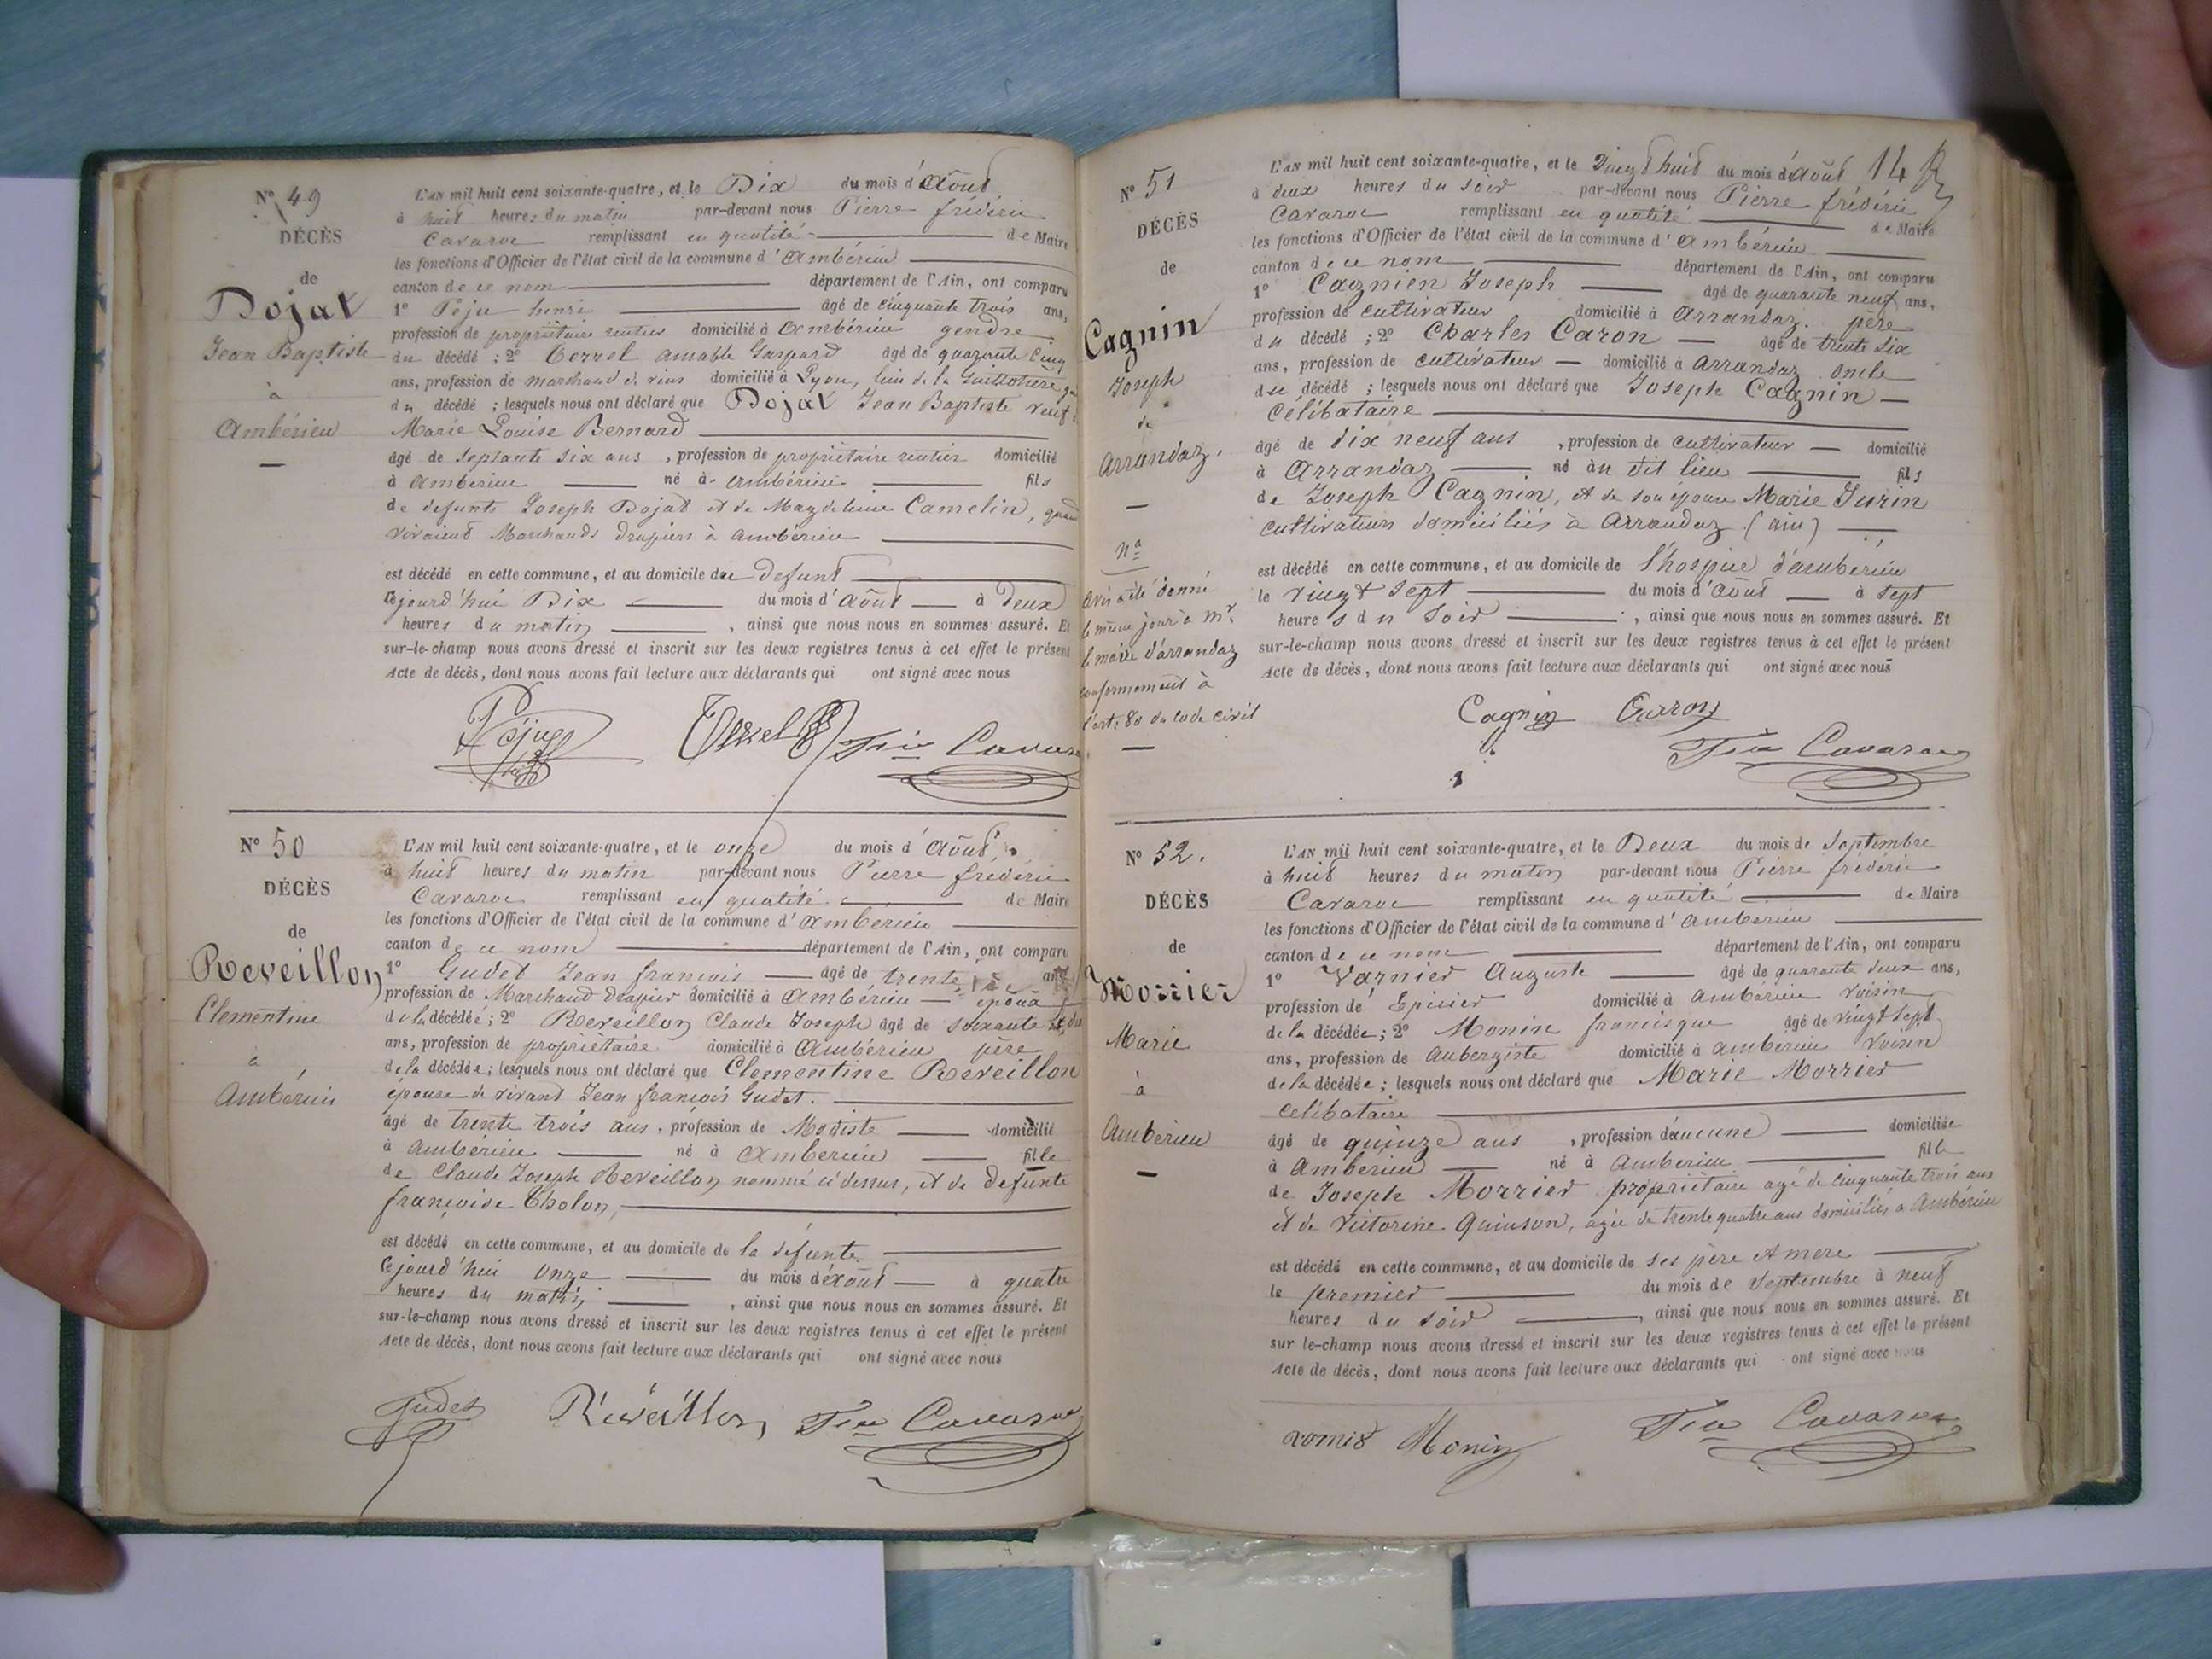 N° 49
DÉCÈS
de
Dojat
Jean Baptiste
à
Ambérieu
L'AN mil huit cent soixante-quatre, et le Dix du mois d'Août
à huit heures du matin par-devant nous Pierre frédéric
Cavaroc remplissant en qualité de Maire
les fonctions d'Officier de l'état civil de la commune d'Ambérieu
canton de ce nom département de l'Ain, ont comparu
1° Péju henri âgé de cinquante trois ans,
profession de propriétaire rentier domicilié à Ambérieu gendre
du décédé ; 2° Terrel amable Gaspard âgé de quarante cinq
ans, profession de marchand de vins domicilié à Lyon, de la Guillotière
du décédé ; lesquels nous ont déclaré que Dojat Jean Baptiste veuf
Marie Louise Bernard
âgé de Septante Six ans , profession de propriétaire rentier domicilié
à ambérieu né à ambérieu fils
de defunts Joseph Dojat et de Magdeleine Camelin, quand
vivaient Marchands drapiers à Ambérieu
est décédé en cette commune, et au domicile du defunt
cejourd'hui Dix du mois d'Août à Deux
heures du matin , ainsi que nous nous en sommes assuré. Et
sur-le-champ nous avons dressé et inscrit sur les deux registres tenus à cet effet le présent
Acte de décès, dont nous avons fait lecture aux déclarants qui ont signé avec nous
Péju Terrel Cavaroc
N° 50
DÉCÈS
de
Reveillon
Clementine
à
Ambérieu
L'AN mil huit cent soixante-quatre, et le onze du mois d'Août
à huit heures du matin par-devant nous Pierre frédéric
Cavaroc remplissant en qualité de Maire
les fonctions d'Officier de l'état civil de la commune d'Ambérieu
canton de ce nom département de l'Ain, ont comparu
1° Gudet Jean françois âgé de trente ans
profession de Marchand drapier domicilié à Ambérieu époux
de la décédée ; 2° Reveillon Claude Joseph âgé de soixante
ans, profession de propriétaire domicilié à Ambérieu père
de la décédée ; lesquels nous ont déclaré que Clementine Reveillon
épouse de vivant Jean françois Gudet.
âgé de trente trois ans. profession de Modiste domicilié
à Ambérieu né à Ambérieu fille
de Claude Joseph Reveillon nommé ci dessus, et de defunte
françoise Tholon,
est décédé en cette commune, et au domicile de la defunte
cejourd'hui Onze du mois d'Août à quatre
heures du matin , ainsi que nous nous en sommes assuré. Et
sur-le-champ nous avons dressé et inscrit sur les deux registres tenus à cet effet le présent
Acte de décès, dont nous avons fait lecture aux déclarants qui ont signé avec nous
Gudet Réveillon Cavaroc
14
N° 51
DÉCÈS
de
Cagnin
Joseph
de
Arrandaz.
na
avis a été donné
le même jour à Mr
le maire d'arrandaz
conformement à
l'art. 80 du code civil
L'AN mil huit cent soixante-quatre, et le Vingt huit du mois d'Août
à deux heures du soir par-devant nous Pierre frédéric
Cavaroc remplissant en qualité de Maire
les fonctions d'Officier de l'état civil de la commune d'Ambérieu
canton de ce nom département de l'Ain, ont comparu
1° Cagnien Joseph âgé de quarante neuf ans,
profession de cultivateur domicilié à Arrandaz. père
du décédé ; 2° Charles Caron âgé de trente six
ans, profession de cultivateur domicilié à Arrandaz oncle
du décédé ; lesquels nous ont déclaré que Joseph Cagnin
Célibataire
âgé de dix neuf ans , profession de cultivateur domicilié
à Arrandaz né au dit lieu fils
de Joseph Cagnin, et de son épouse Marie Jurin
cultivateurs domiciliés à Arrandaz (ain)
est décédé en cette commune, et au domicile de l'hospice d'ambérieu
le vingt Sept du mois d'Août à Sept
heures du Soir , ainsi que nous nous en sommes assuré. Et
sur-le-champ nous avons dressé et inscrit sur les deux registres tenus à cet effet le présent
Acte de décès, dont nous avons fait lecture aux déclarants qui ont signé avec nous
Cagnin Caron
Cavaroc
N° 52.
DÉCÈS
de
Morrier
Marie
à
Ambérieu
L'AN mil huit cent soixante-quatre, et le Deux du mois de Septembre
à huit heures du matin par-devant nous Pierre frédéric
Cavaroc remplissant en qualité de Maire
les fonctions d'Officier de l'état civil de la commune d'Ambérieu
canton de ce nom département de l'Ain, ont comparu
1° Varnier Auguste âgé de quarante deux ans,
profession de Epicier domicilié à Ambérieu voisin
de la décédée ; 2° Monin francisque âgé de vingt sept
ans, profession de Aubergiste domicilié à ambérieu voisin
de la décédée ; lesquels nous ont déclaré que Marie Morrier
celibataire
âgé de quinze ans , profession d'aucune domicilié
à Ambérieu né à Ambérieu fille
de Joseph Morrier propriétaire agé de cinquante trois ans
et de Victorine Quinson, agée de trente quatre ans domiciliés à Ambérieu
est décédé en cette commune, et au domicile de ses père et mere
le premier du mois de Septembre à neuf
heures du soir , ainsi que nous nous en sommes assuré. Et
sur le-champ nous avons dressé et inscrit sur les deux registres tenus à cet effet le présent
Acte de décès, dont nous avons fait lecture aux déclarants qui ont signé avec nous
Monin Cavaroc